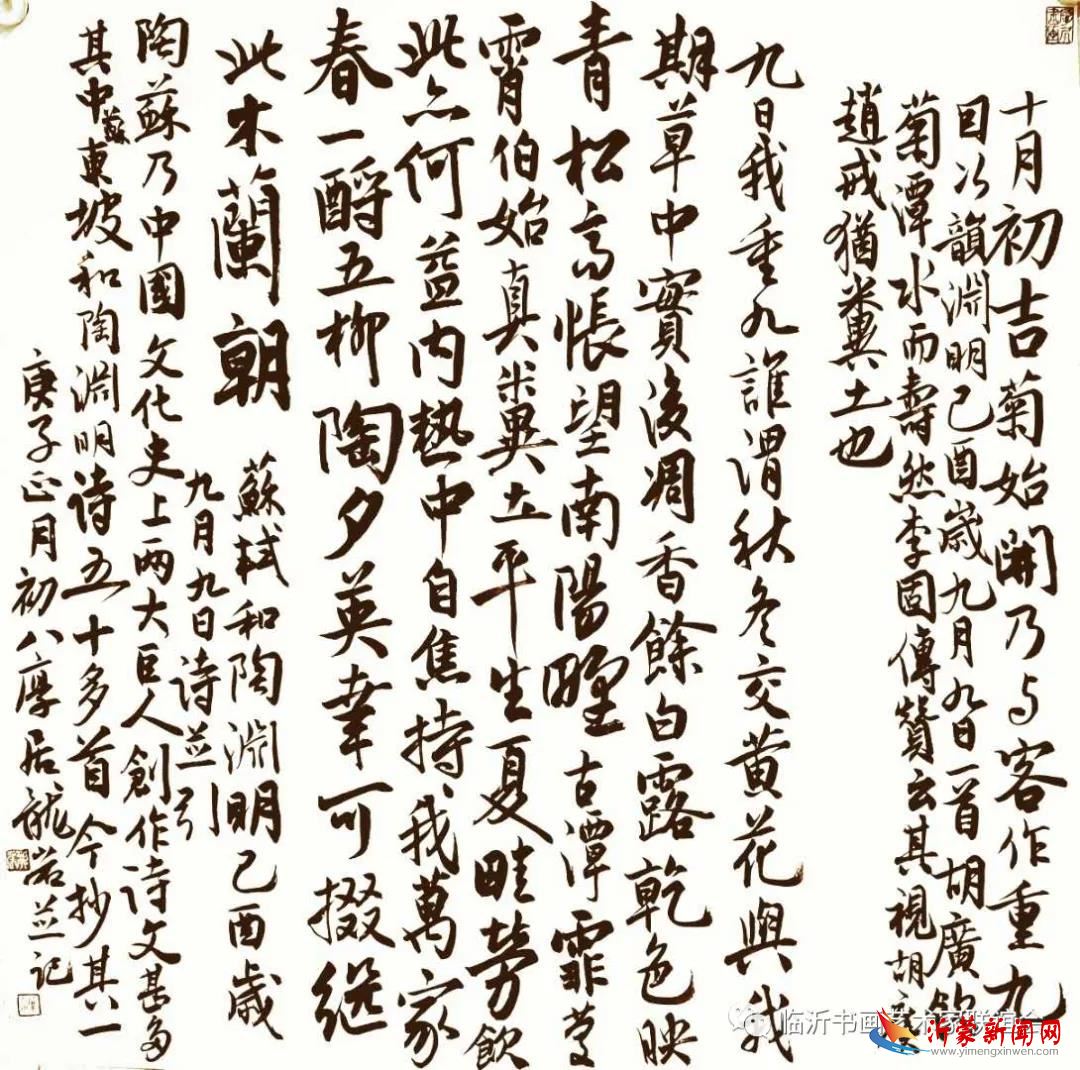 十月初吉菊始開乃与客作重九
因次韻淵明己酉歲九月九日一首胡廣飲
菊潭水而壽然李固傳贊云其視胡廣
趙戒猶糞土也
九日我重九誰謂秋冬交黄花與我
期草中實後凋香餘白露乾色映
青松高悵望南陽野古潭霏慶
霄伯始真糞土平生夏畦勞飲
此亦何益内熱中自焦持我萬家
春一酹五柳陶夕英幸可掇继
此木蘭朝
蘇軾和陶淵明己酉歲
九月九日诗並引
陶蘇乃中國文化史上兩大巨人創作诗文甚多
其中蘇東坡和陶淵明诗五十多首今抄其一
庚子正月初八 居龍 並记
临沂书画艺术家联谊会
沂蒙新闻网
www.yimengxinwen.com